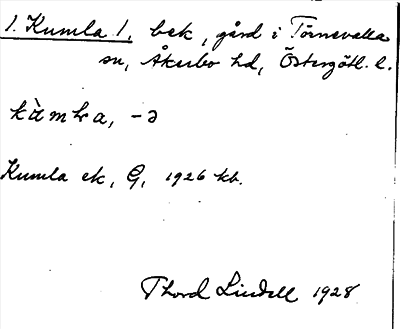 1. Kumla 1, bek, gård i Törnevalla
sn, Åkerbo hd, Östergötl. l.
kùmła, -ə
Kumla ek, G, 1926 kb.
Thord Lindell 1928